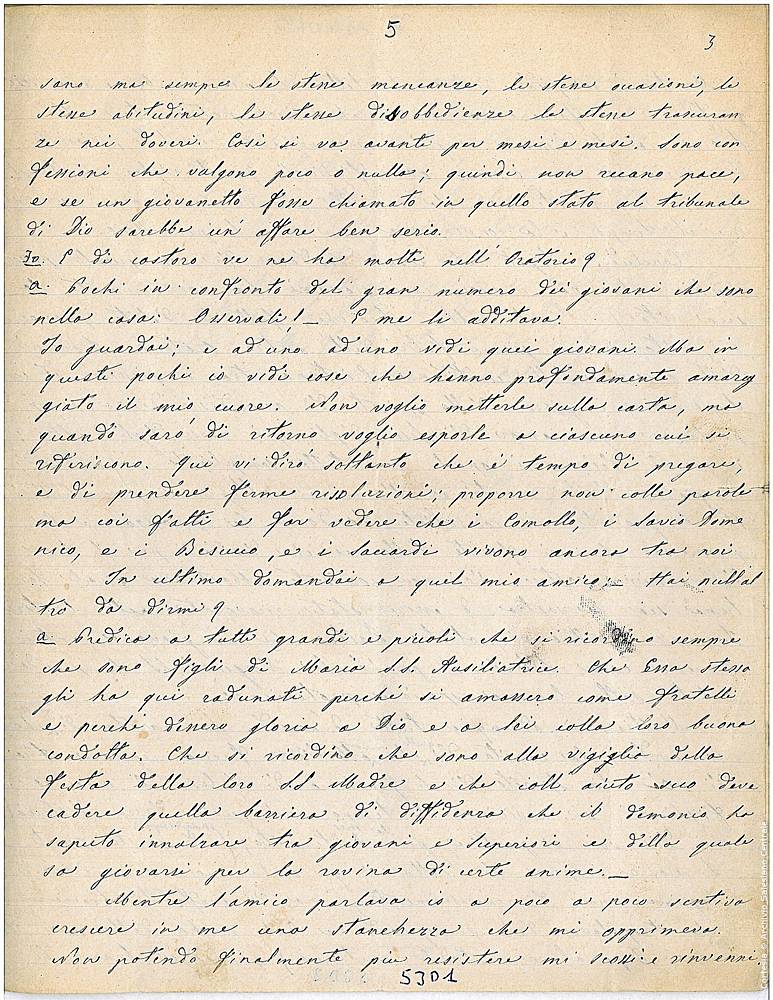 5
3
sano ma sempre le stesse mancanze, le stesse occasioni, le
stesse abitudini, le stesse disobbedienze le stesse trascuran
ze nei doveri. Così si va avanti per mesi e mesi. Sono con
fessioni che valgono poco o nulla; quindi non recano pace,
e se un giovanetto fosse chiamato in quello stato al tribunale
di Dio sarebbe un' affare ben serio.
Io. E di costoro ve ne ha molti nell' Oratorio?
a. Pochi in confronto del gran numero dei giovani che sono
nella casa. Osservali! _ E me li additava.
Io guardai; e ad uno ad uno vidi quei giovani. Ma in
questi pochi io vidi cose che hanno profondamente amareg
giato il mio cuore. Non voglio metterle sulla carta, ma
quando sarò di ritorno voglio esporle a ciascuno cui si
riferiscono. Qui vi dirò soltanto che è tempo di pregare,
e di prendere ferme risoluzioni; proporre non colle parole
ma coi fatti e far vedere che i Comollo, i Savio Dome
nico, e i Besucco, e i Saccardi vivono ancora tra noi
In ultimo domandai a quel mio amico: _ Hai null'al
tro da dirmi?
a Predica a tutti grandi e piccoli che si ricordino sempre
che sono figli di Maria S.S. Ausiliatrice. Che Essa stessa
gli ha qui radunati perchè si amassero come fratelli
e perchè dessero gloria a Dio e a lei colla loro buona
condotta. Che si ricordino che sono alla vigiglia della
festa della loro S.S Madre e che coll' aiuto suo deve
cadere quella barriera di diffidenza che il demonio ha
saputo innalzare tra giovani e Superiori e della quale
sa giovarsi per la rovina di certe anime. _
Mentre l'amico parlava io a poco a poco sentiva
crescere in me una stanchezza che mi opprimeva.
Non potendo finalmente più resistere mi scossi e rinvenni.
5301
© Archivio Salesiano Centrale